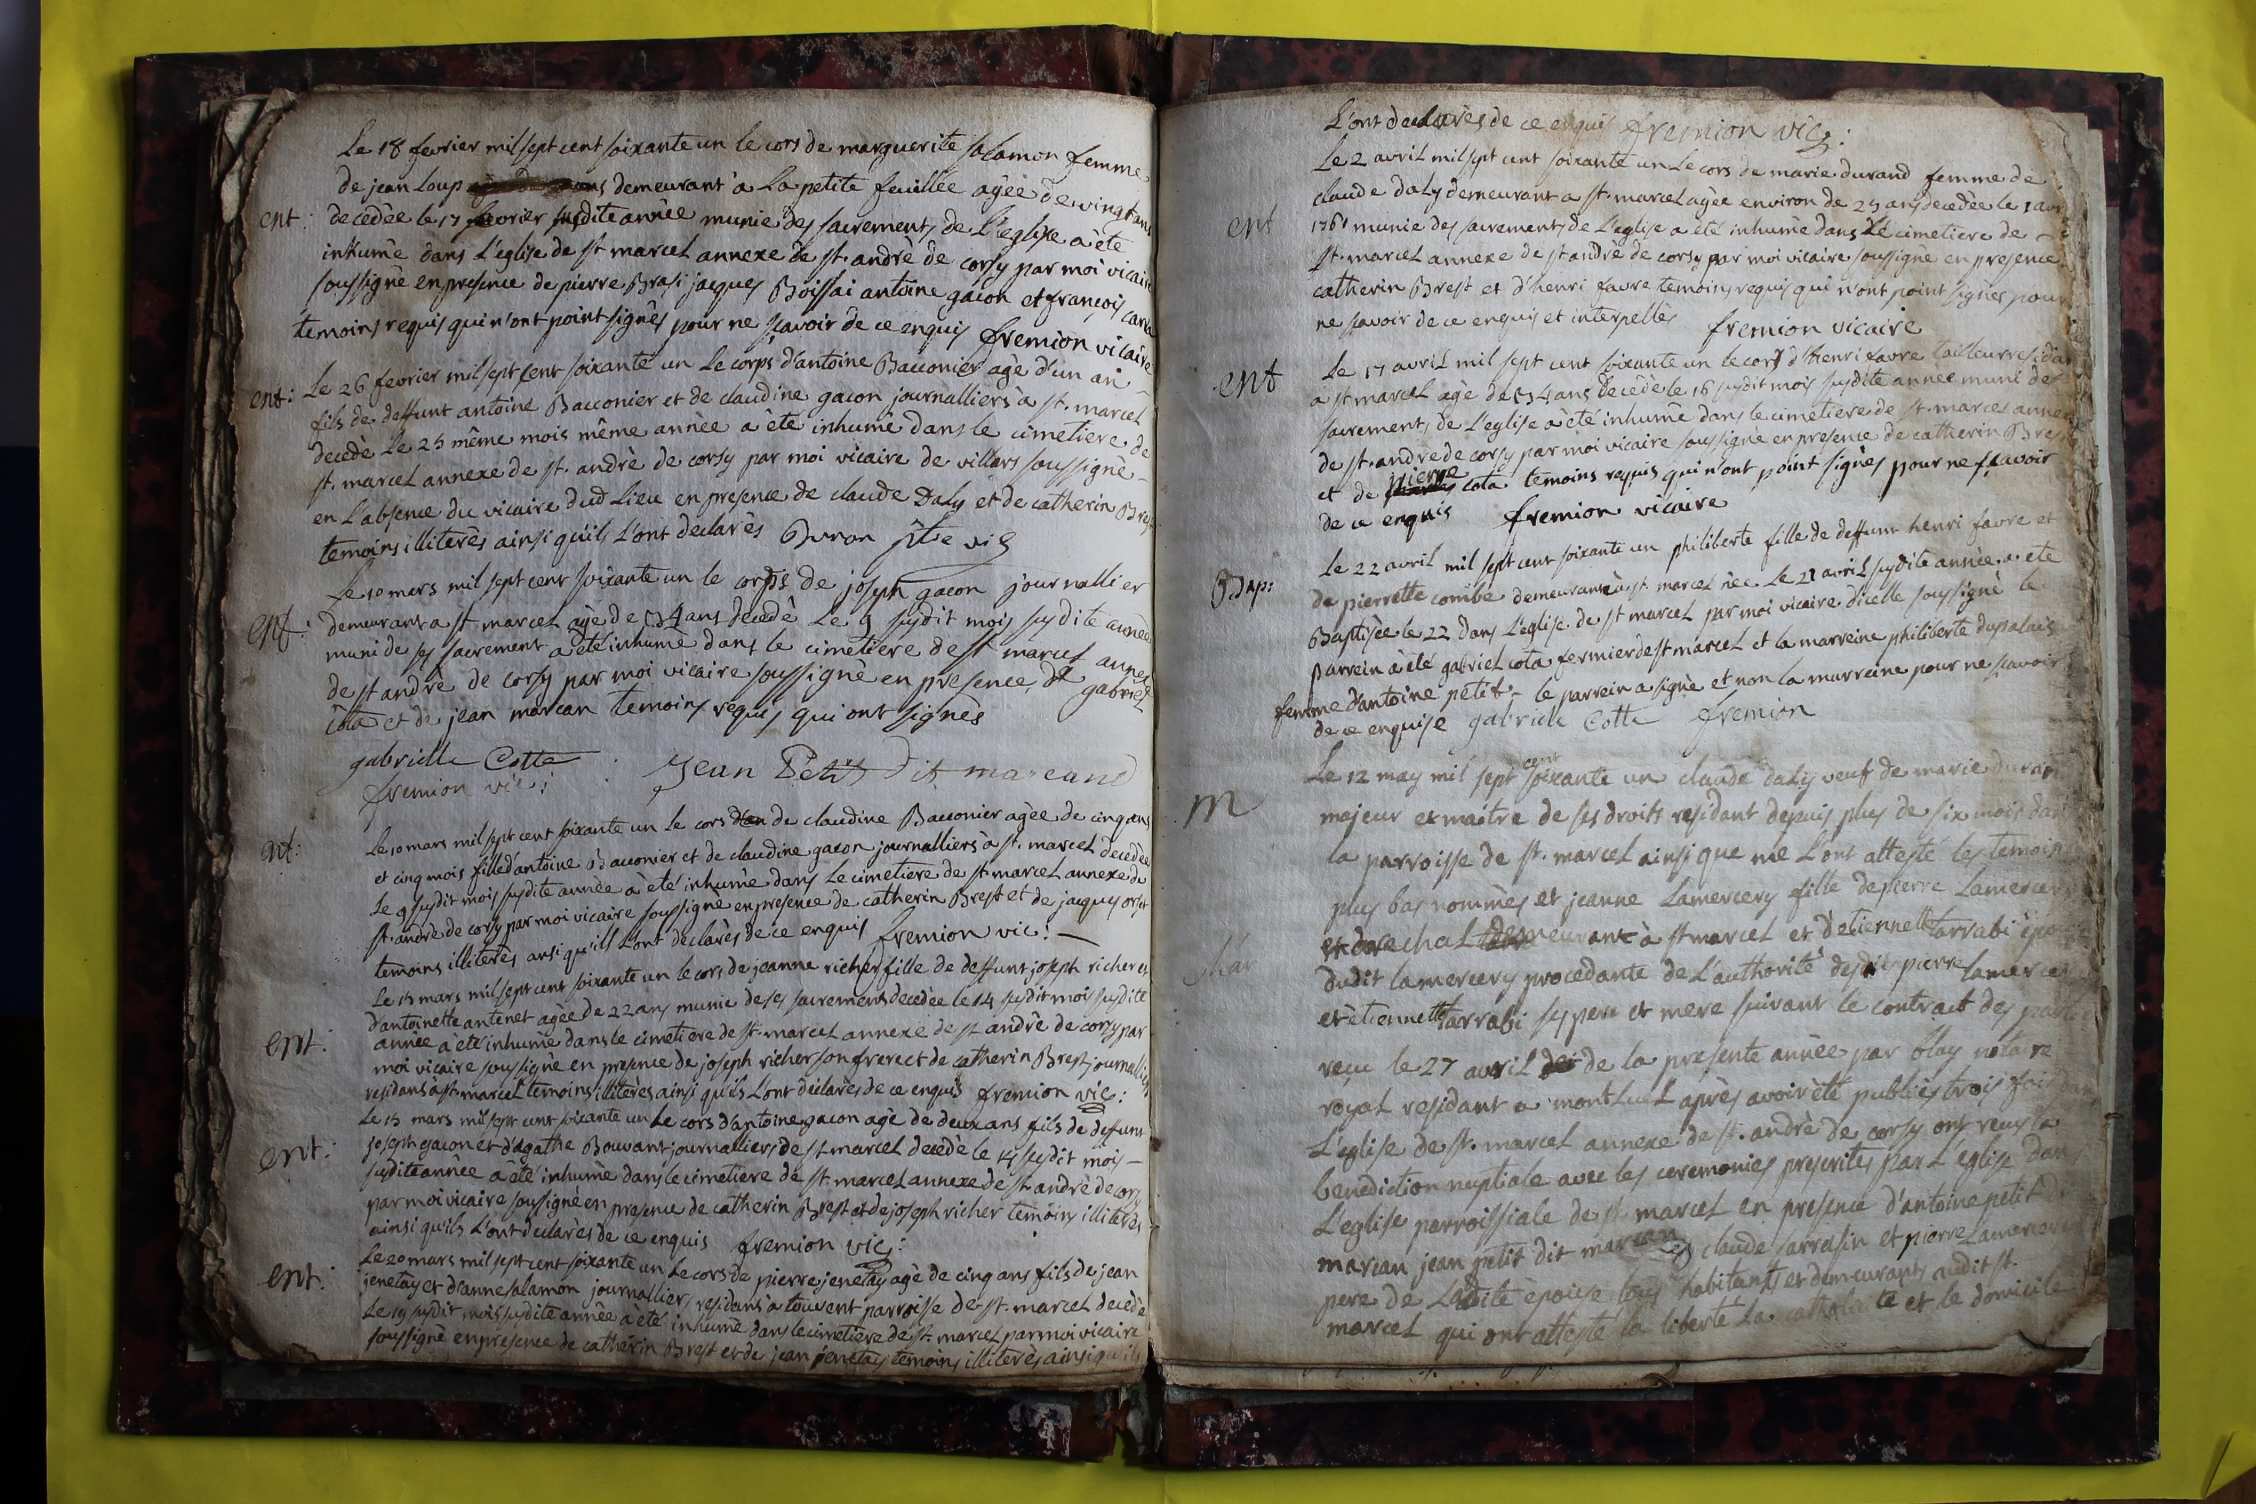 Le 18 fevrier mil sept cent soixante un le cors de marguerite salamon femme
de jean Loup demeurant a La petite feuillée agée de vingt ans
ent: decedée le 17 fevrier susdite année munie des sacrements de L'eglise a été
inhumé dans L'eglise de st marcel annexe de st. andré de corsy par moi vicaire
soussigné en presence de pierre Brasi jacques Boissai antoine gacon et françois
temoins requis qui n'ont point signés pour ne sçavoir de ce enquis fremion vicaire
ent: Le 26 fevrier mil sept cent soixante un Le corps d'antoine Bacconier agé d'un an
fils de deffunt antoine Bacconier et de claudine gacon journalliers à st. marcel
decedé Le 25 même mois même année a été inhumé dans le cimetiere de
st. marcel annexe de st. andré de corsy par moi vicaire de villars soussigné
en L'absence du vicaire dud Lieu en presence de claude Daly et de catherin Brest
temoins illiterés ainsi qu'ils L'ont declarés Buron ptre vic
Le 10 mars mil sept cent soixante un le corps de joseph gacon journallier
ent: demeurant a st marcel agé de 54 ans decedé Le 9 susdit mois susdite année
muni de ses sacrement a été inhumé dans le cimetiere de st marcel annexe
de st andré de corsy par moi vicaire soussigné en presence de gabriel
cota et de jean marcan temoins requis qui ont signés
gabrielle Cotte Jean Petit dit marcand
fremion vic:
ent: Le 10 mars mil sept cent soixante un Le cors de claudine Bacconier agée de cinq ans
et cinq mois fille d'antoine Bacconier et de claudine gacon journalliers à st. marcel decedée
Le 9 susdit mois susdite année a été inhumé dans Le cimetiere de st marcel annexe de
st. andré de corsy par moi vicaire soussigné en presence de catherin Brest et de jacques
temoins illiterés ainsi qu'ils L'ont declarés de ce enquis fremion vic:
Le 15 mars mil sept cent soixante un le cors de jeanne richer fille de deffunt joseph richer et
d'antoinette antenet agée de 22 ans munie de ses sacrements decedée le 14 susdit mois susdite
ent: année a été inhumé dans le cimetiere de st. marcel annexe de st andré de corsy par
moi vicaire soussigné en presence de joseph richer son frere et de catherin Brest journalliers
residans a st. marcel temoins illiterés ainsi qu'ils L'ont declarés de ce enquis fremion vic:
Le 15 mars mil sept cent soixante un Le cors d'antoine gacon agé de deux ans fils de deffunt
ent: joseph gacon et d'agathe Bouvant journalliers de st marcel decedé le 14 susdit mois
susdite année a été inhumé dans le cimetiere de st. marcel annexe de st andré de corsy
par moi vicaire soussigné en presence de catherin Brest et de joseph richer temoins illiterés
ainsi qu'ils L'ont declarés de ce enquis fremion vic:
Le 20 mars mil sept cent soixante un Le cors de pierre jenetay agé de cinq ans fils de jean
ent: jenetay et d'anne salamon journalliers residans à touvent parroisse de st. marcel decedé
Le 19 susdit mois susdite année a été inhumé dans le cimetiere de st. marcel par moi vicaire
soussigné en presence de catherin Brest et de jean jenetay temoins illiterés ainsi qu'ils
L'ont declarés de ce enquis fremion vic:
Le 2 avril mil sept cent soixante un Le cors de marie durand femme de
claude Daly demeurant a st. marcel agée environ de 25 ans decedée le 1 avril
ent 1761 munie des sacrements de L'eglise a été inhumé dans Le cimetiere de
st. marcel annexe de st andré de corsy par moi vicaire soussigné en presence
catherin Brest et d'henri favre temoins requis qui n'ont point signés pour
ne sçavoir de ce enquis et interpellés fremion vicaire
ent Le 17 avril mil sept cent soixante un le cors d'henri favre tailleur
a st marcel agé de 54 ans decedé le 16 susdit mois susdite année muni des
sacrements de L'eglise a été inhumé dans le cimetiere de st. marcel annexe
de st. andré de corsy par moi vicaire soussigné en presence de catherin Brest
et de pierre cota temoins requis qui n'ont point signés pour ne sçavoir
de ce enquis fremion vicaire
Le 22 avril mil sept cent soixante un philiberte fille de deffunt henri favre et
Bap: de pierrette combe demeurant à st. marcel née Le 21 avril susdite année a été
Baptisée le 22 dans L'eglise de st marcel par moi vicaire d'icelle soussigné le
parrein a été gabriel cota fermier de st marcel et la marreine philiberte dupalais
femme d'antoine petit - le parrein a signé et non la marreine pour ne sçavoir
de ce enquise gabrielle Cotte fremion
Le 12 may mil sept cent soixante un claude daly veuf de marie durand
m majeur et maitre de ses droits residant depuis plus de six mois dans
la parroisse de st. marcel ainsi que me L'ont attesté les temoins
plus bas nommés et jeanne Lamercery fille de pierre Lamercery
demeurant à st marcel et d'etiennette sarrabi
dudit lamercery procedante de L'authorité desdits pierre lamercery
et etiennette sarrabi ses pere et mere suivant le contract des parties
reçu le 27 avril de la presente année par notaire
royal residant a montluel après avoir été publiés trois fois
L'eglise de st. marcel annexe de st. andré de corsy ont reçus la
benediction nuptiale avec les ceremonies prescrites par L'eglise dans
L'eglise parroissiale de st. marcel en presence d'antoine petit dit
marcan jean petit dit marcan claude sarrasin et pierre Lamercery
pere de Ladite epouse tous habitants et demeurants audit st.
marcel qui ont attesté la liberté la catholicité et le domicile